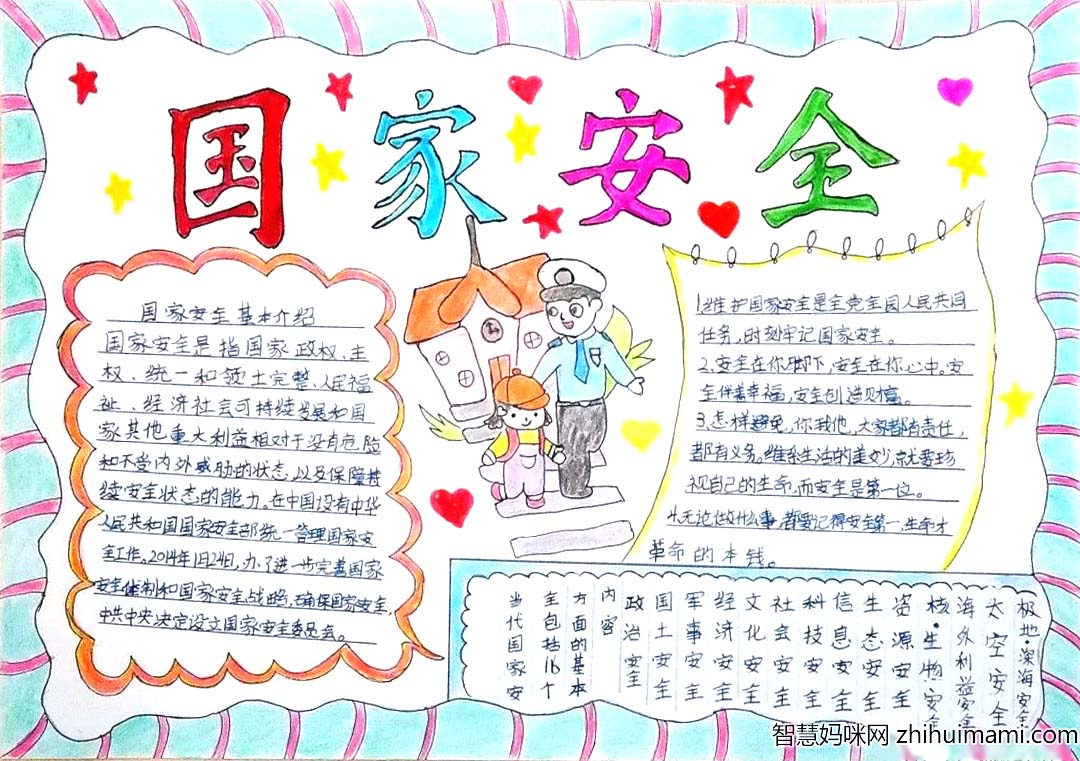 国家安全
国家安全基本介绍
国家安全是指国家政权、主
权、统一和领土完整、人民福
祉、经济社会可持续发展和国
家其他重大利益相对于没有危险
和不受内外威胁的状态,以及保障持
续安全状态的能力。在中国设有中华
人民共和国国家安全部统一管理国家安
全工作。2014年1月24日,为了进一步完善国家
安全体制和国家安全战略,确保国家安全,
中共中央决定设立国家安全委员会。
1.维护国家安全是全党全国人民共同
任务,时刻牢记国家安全。
2.安全在你脚下,安全在你心中。安
全伴着幸福,安全创造财富。
3.怎样避免,你我他,大家都有责任,
都有义务。维系生活的美妙,就要珍
视自己的生命,而安全是第一位。
4.无论做什么事,都要记得安全第一,生命才
革命的本钱。
当代国家安
全包括16个
方面的基本
内容
政治安全
国土安全
军事安全
经济安全
文化安全
社会安全
科技安全
信息安全
生态安全
资源安全
核·生物安全
海外利益安全
太空安全
极地·深海安全
智慧妈咪网 zhihuimami.com